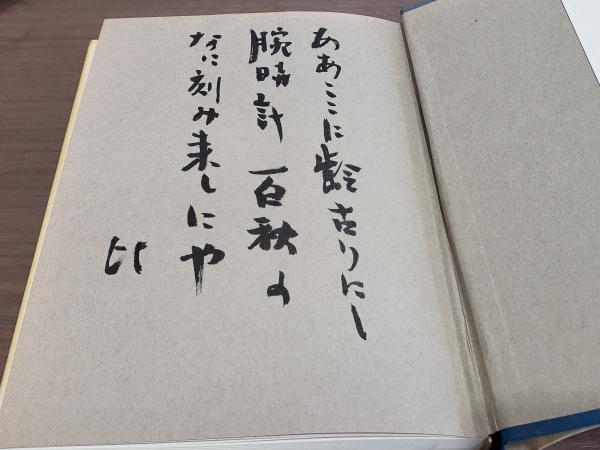 ああここに齢古りにし
腕時計 百秋の
なに刻み来しにや